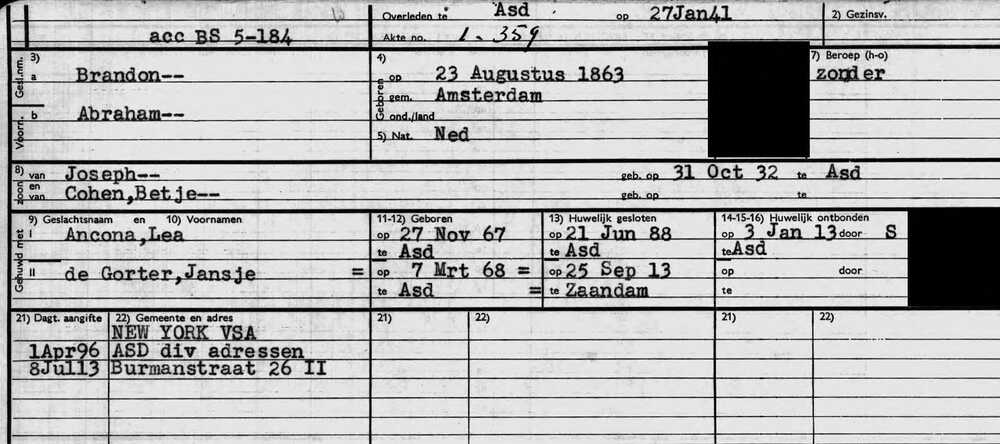 Overleden te Asd op 27Jan41 2) Gezinsv.
acc BS 5-184 Akte no. 1.359
3) 4) 7) Beroep (h-o)
Gesl.nm. a Brandon-- Geboren op 23 Augustus 1863 zonder
gem. Amsterdam
Voorn. b Abraham-- ond./land
5) Nat. Ned
8) van Joseph-- geb. op 31 Oct 32 te Asd
zoon en van Cohen,Betje-- geb. op te
9) Geslachtsnaam en 10) Voornamen 11-12) Geboren 13) Huwelijk gesloten 14-15-16) Huwelijk ontbonden
Gehuwd met I Ancona,Lea op 27 Nov 67 op 21 Jun 88 op 3 Jan 13 door S
te Asd te Asd te Asd
II de Gorter,Jansje = op 7 Mrt 68 = op 25 Sep 13 op door
te Asd = te Zaandam te
21) Dagt. aangifte 22) Gemeente en adres 21) 22) 21) 22)
NEW YORK VSA
1Apr96 ASD div adressen
8Jul13 Burmanstraat 26 II